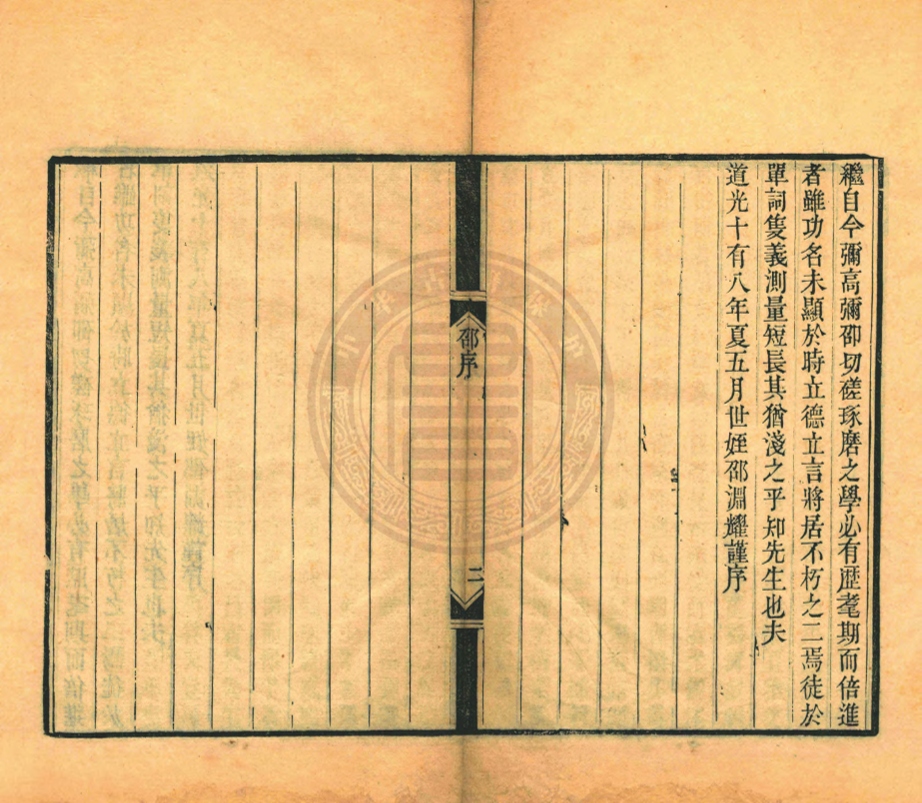 繼自今彌高彌卲切磋琢磨之學必有歷耄期而倍進
者雖功名未顯於時立德立言將居不朽之二焉徒於
單詞隻義測量短長其猶淺之乎知先生也夫
道光十有八年夏五月世姪邵淵耀謹序
邵序
二